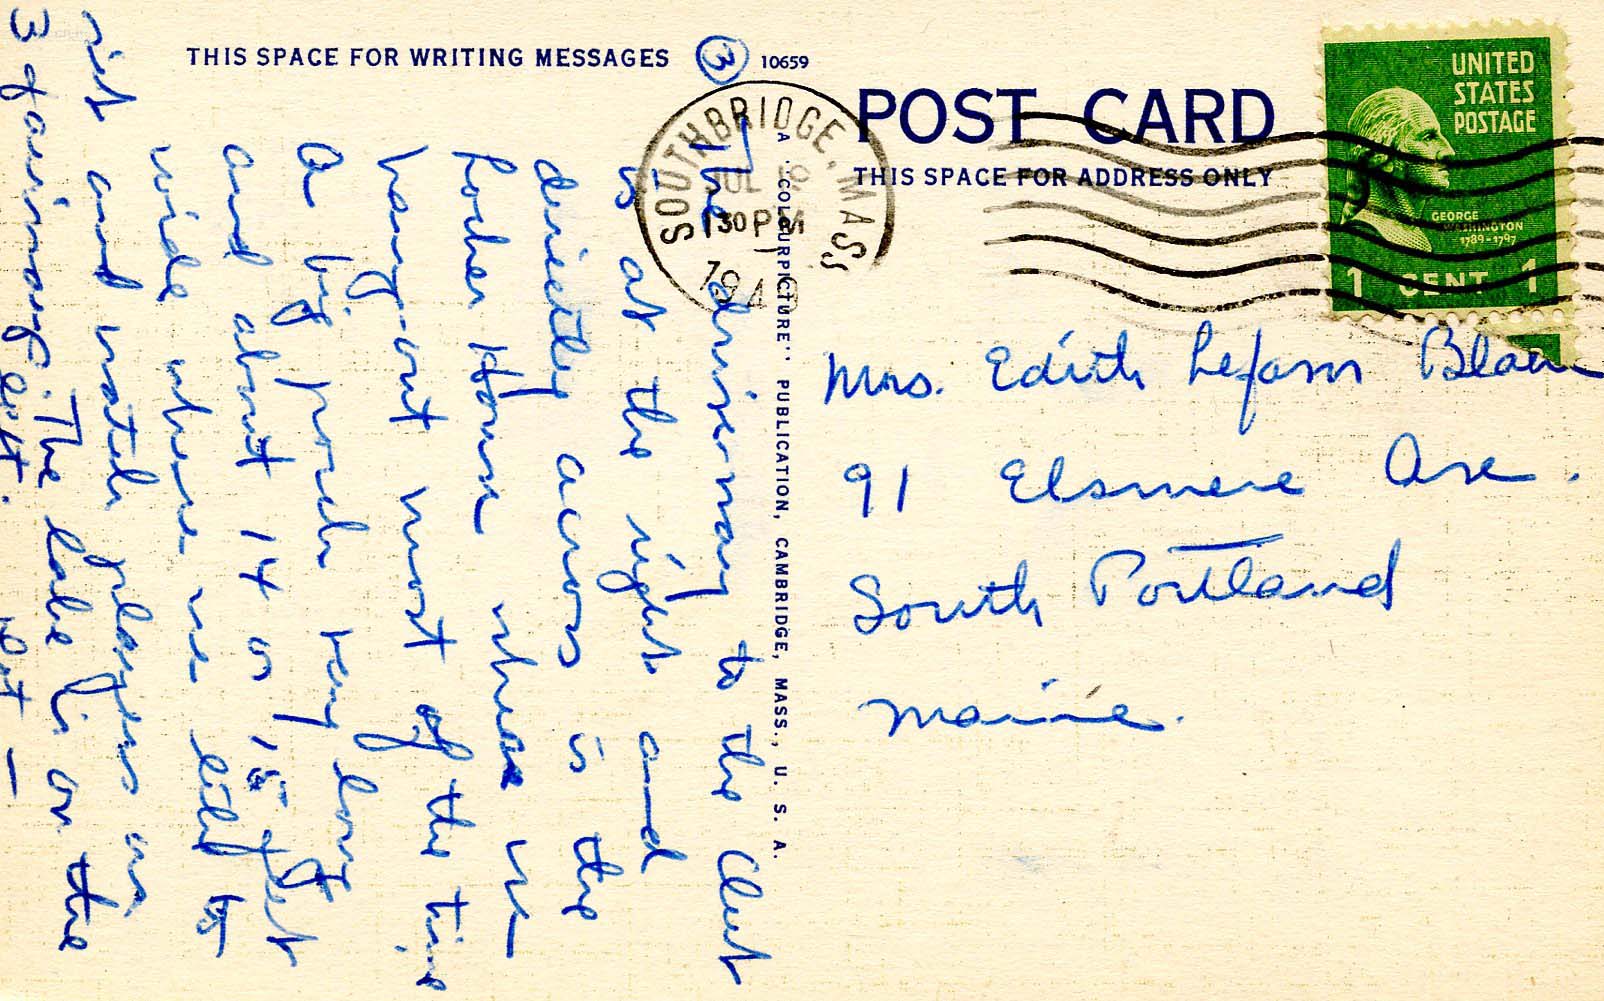 THIS SPACE FOR WRITING MESSAGES
3
10659
POST CARD
THIS SPACE FOR ADDRESS ONLY
UNITED
STATES
POSTAGE
GEORGE
WASHINGTON
1789-1797
1 CENT 1
SOUTHBRIDGE, MASS
JUL
1 30 PM
194
A "COLOURPICTURE" PUBLICATION, CAMBRIDGE, MASS., U. S. A.
Mrs. Edith
91 Elsmere Ave.
South Portland
Maine.
The driveway to the Club
is at the right and
directly across is the
Fowler House where we
hang-out most of the time
a big porch very long
and about 14 or 15 feet
wide where we like to
sit and watch players on
3 of fairways. The lake is on the
left.